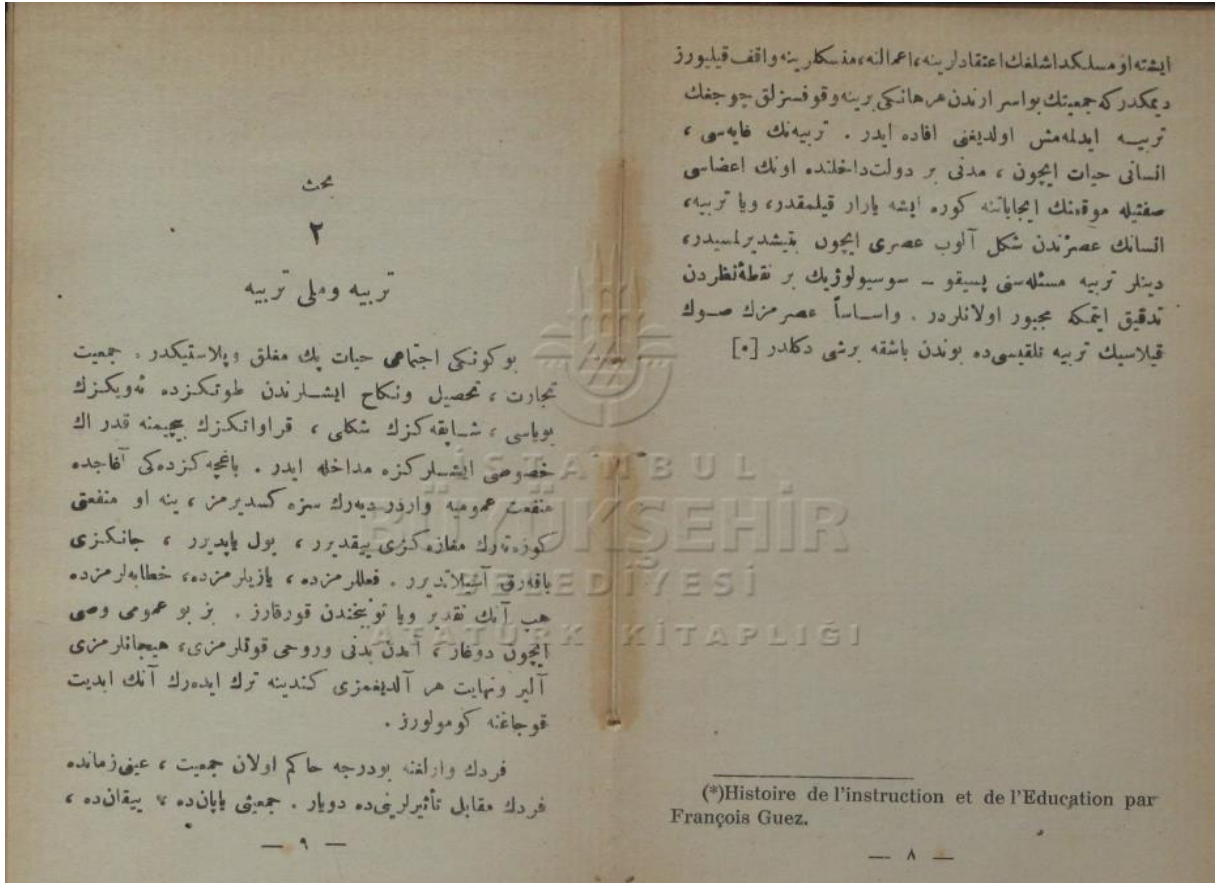 ایشته او مسلكداشلغك اعتقادلرینه، اعمالنه، منسكلرینه واقف قیلیورز
دیمكدر كه جمعیتك بو اسرارندن هر هانكی برینه وقوفسزلق چوجغك
تربیه ایدلمه‌مش اولدیغنی افاده ایدر . تربیه‌نك غایه‌سی ،
انسانی حیات ایچون ، مدنی بر دولت داخلنده اونك اعضاسی
صفتیله موقعنك ایجاباتنه كوره ایشه یارار قیلمقدر، ویا تربیه،
انسانك عصرندن شكل آلوب عصری ایچون یتیشدیرلمسیدر،
دینلر تربیه مسئله‌سنی پسیقو ـ سوسیولوژیك بر نقطهٔ‌نظردن
تدقیق ایتمكه مجبور اولانلردر . واساساً عصرمزك صوك
قیلاسیك تربیه تلقیسی‌ده بوندن باشقه برشی دكلدر [*]
(*)Histoire de l'instruction et de l'Education par
François Guez.
— ٨ —
بحث
٢
تربیه وملی تربیه
بوكونكی اجتماعی حیات پك مغلق وپلاستیكدر . جمعیت
تجارت ، تحصیل ونكاح ایشلرندن طوتكزده ئه‌ویكزك
بویاسی ، شاپقه‌كزك شكلی ، قراواتكزك بیچیمنه قدر اك
خصوصی ایشلركزه مداخله ایدر . باغچه‌كزده‌كی آغاجده
منفعت عمومیه واردر دیه‌رك سزه كسدیرمز ، ینه او منفعتی
كوزه‌ته‌رك مغازه‌كزی ییقدیرر ، یول یاپدیرر ، جانكزی
یاقه‌رق آشیلاتدیرر . فعللرمزده ، یازیلرمزده، خطابه‌لرمزده
هب آنك تقدیر ویا توبیخندن قورقارز . بز بو عمومی وصی
ایچون دوغار ، آندن بدنی وروحی قوتلرمزی، هیجانلرمزی
آلیر ونهایت هر آلدیغمزی كندینه ترك ایده‌رك آنك ابدیت
قوجاغنه كومولورز .
فردك وارلغنه بودرجه حاكم اولان جمعیت ، عینی زمانده
فردك مقابل تأثیرلرینی‌ده دویار . جمعیتی یاپان‌ده ، ییقان‌ده ،
— ٩ —
İSTANBUL
BÜYÜKŞEHİR
BELEDİYESİ
ATATÜRK KİTAPLIĞI